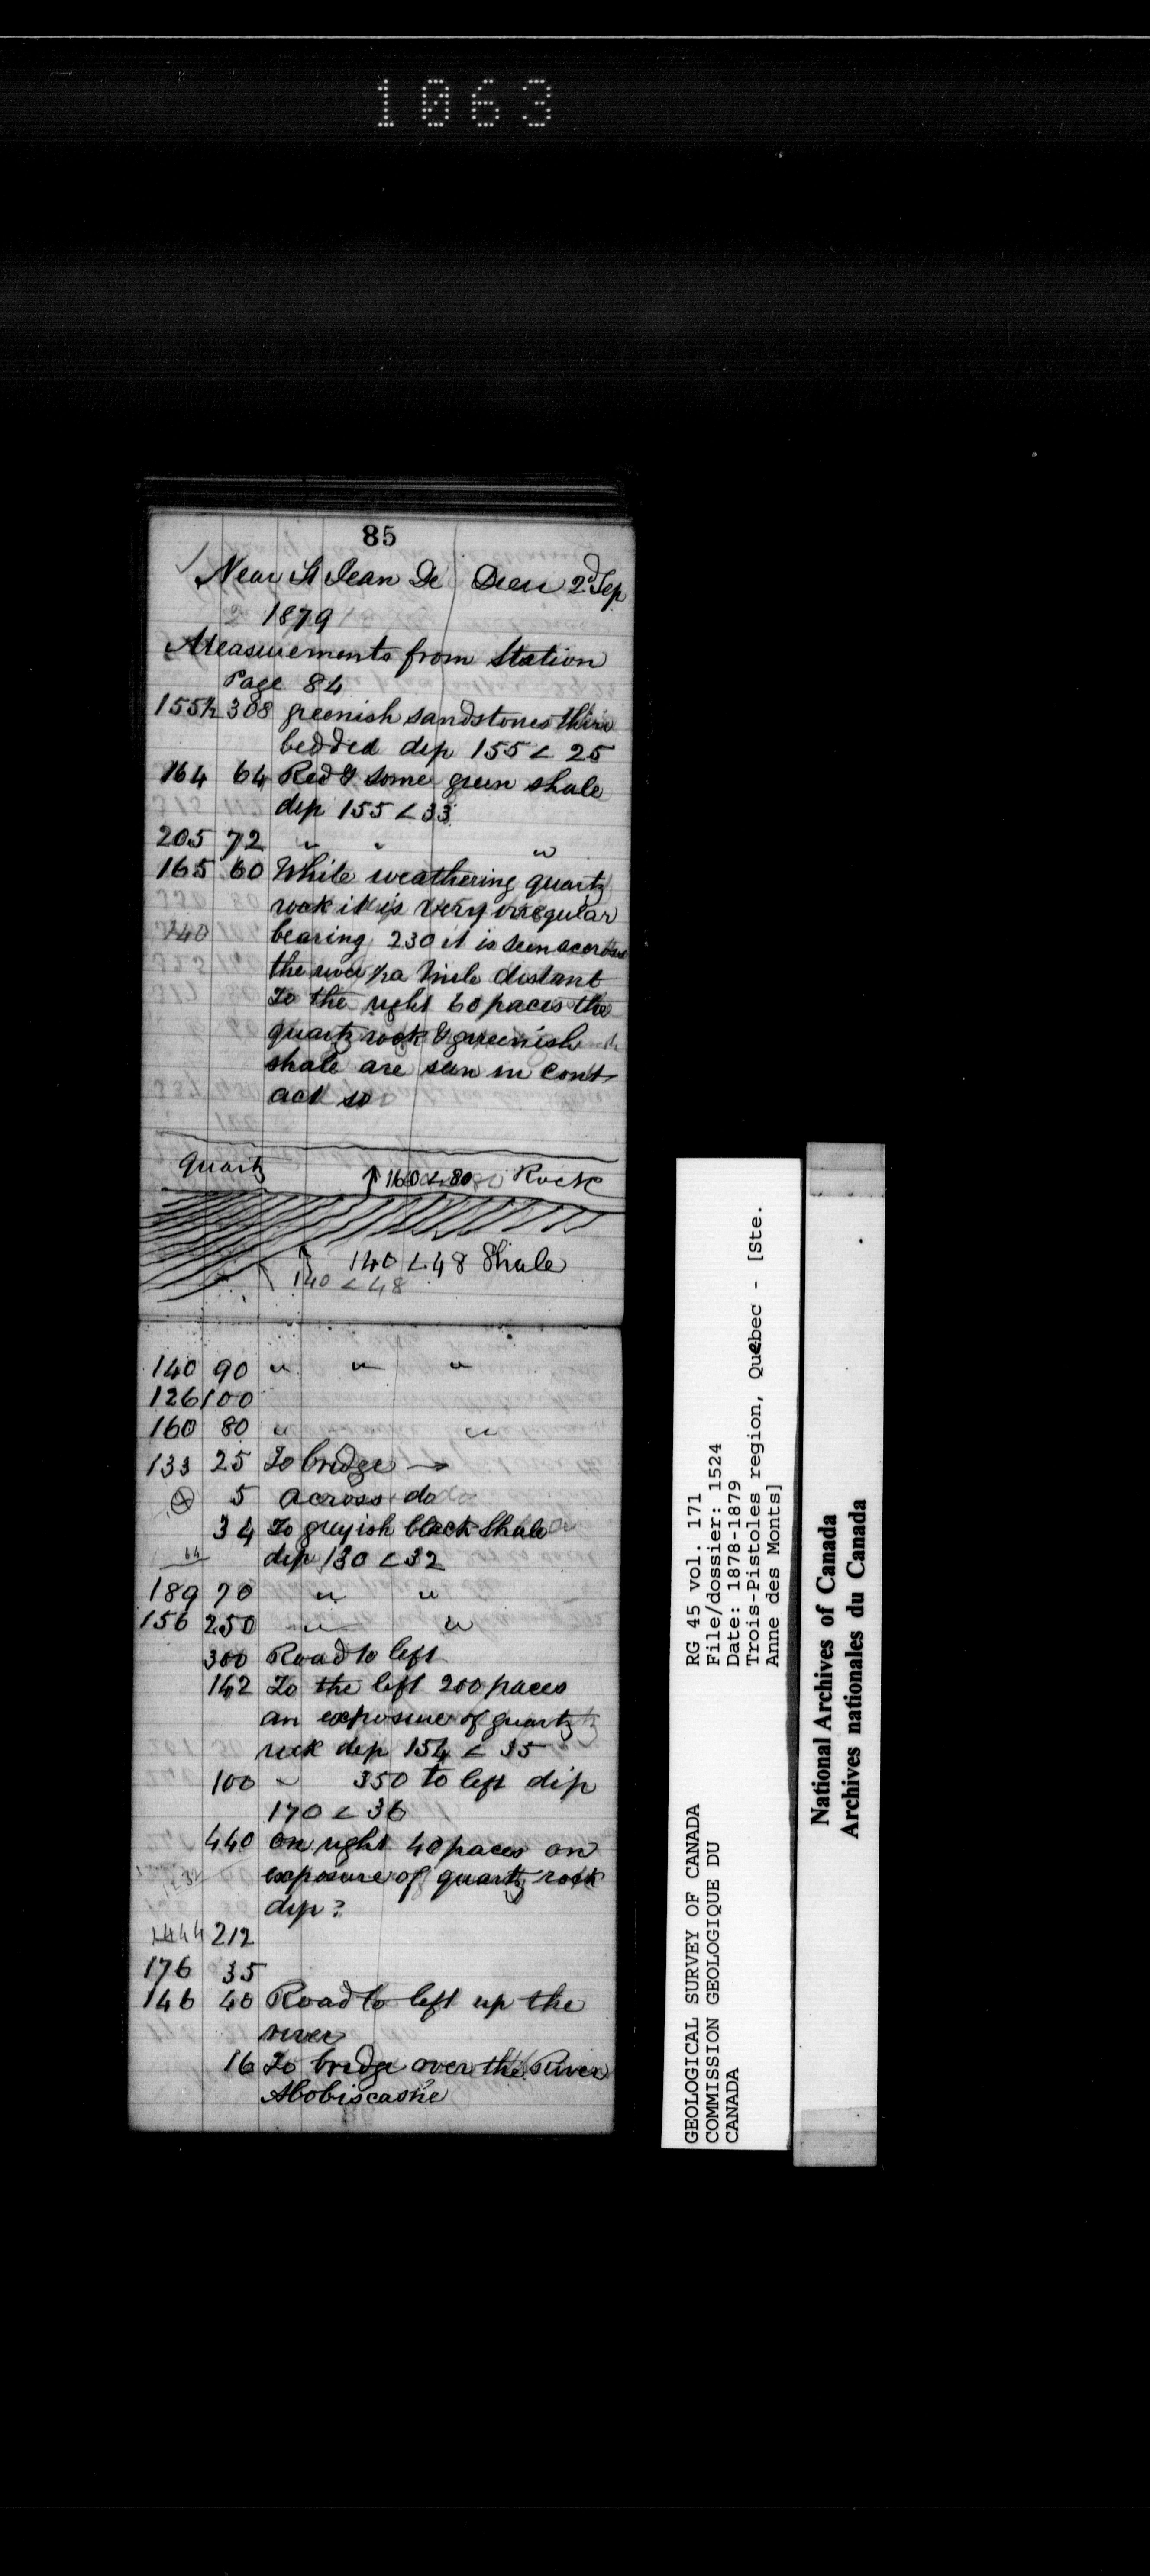 1063
85
Near St Jean De Dieu 2d Sep
1879
Measurements from Station
Page 84
155½ 308 greenish sandstones thin
bedded dip 155 < 25
164 64 Red & some green shale
dip 155 < 33
205 72 " " "
165 60 White weathering quartz
rock it is very irregular
140 bearing 230 it is seen
the river ½ a mile distant
To the right 60 paces the
quartz rock & greenish
shale are seen in cont
act so
Quartz ↑ 160 < 80 Rock
140 < 48 Shale
140 < 48
140 90 " " "
126 100
160 80 " "
133 25 To bridge →
⊗ 5 across do
34 To greyish black Shale
64 dip 130 < 32
189 70 " "
156 250 " "
300 Road to left
142 To the left 200 paces
an exposure of quartz
rock dip 154 < 35
100 " 350 to left dip
170 < 36
440 on right 40 paces an
1232 exposure of quartz rock
dip ?
1444 212
176 35
146 40 Road to left up the
river
16 To bridge over the River
Abobiscashe
GEOLOGICAL SURVEY OF CANADA
COMMISSION GEOLOGIQUE DU
CANADA
RG 45 vol. 171
File/dossier: 1524
Date: 1878-1879
Trois-Pistoles region, Quebec - [Ste.
Anne des Monts]
National Archives of Canada
Archives nationales du Canada